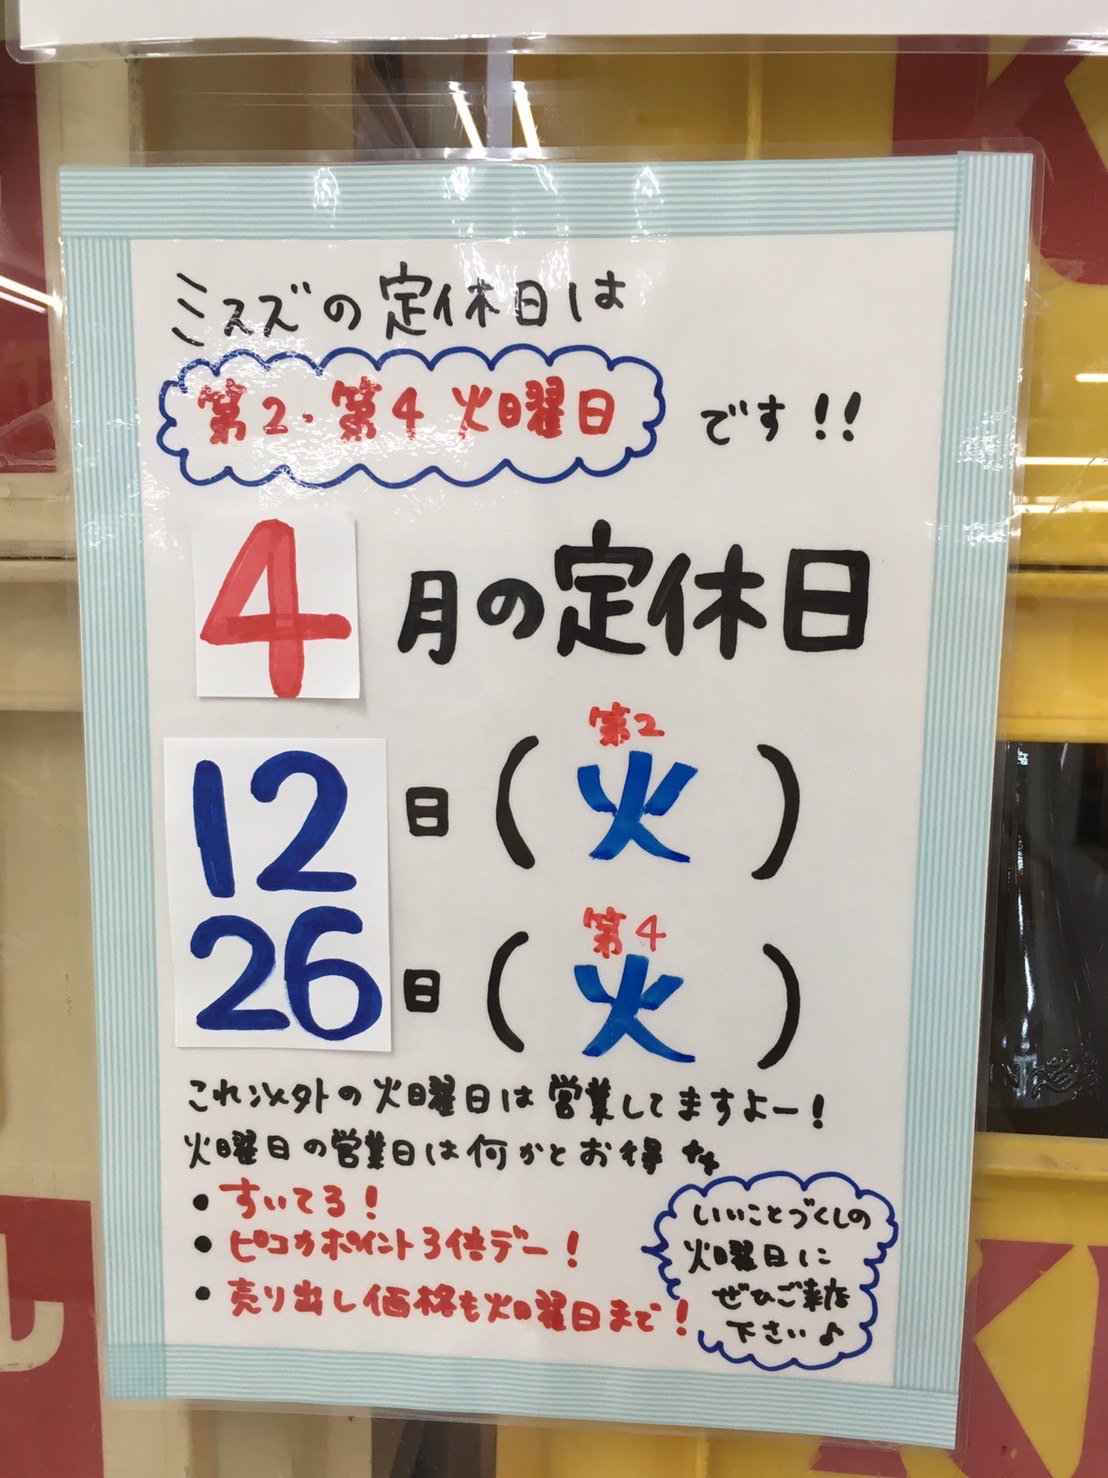 ミスズの定休日は
第2・第4 火曜日 です!!
4月の定休日
12日(第2火)
26日(第4火)
これ以外の火曜日は営業してますよー!
火曜日の営業日は何かとお得
・すいてる!
・ピコカポイント3倍デー!
・売り出し価格も火曜日まで!
いいことづくしの
火曜日に
ぜひご来店
下さい♪